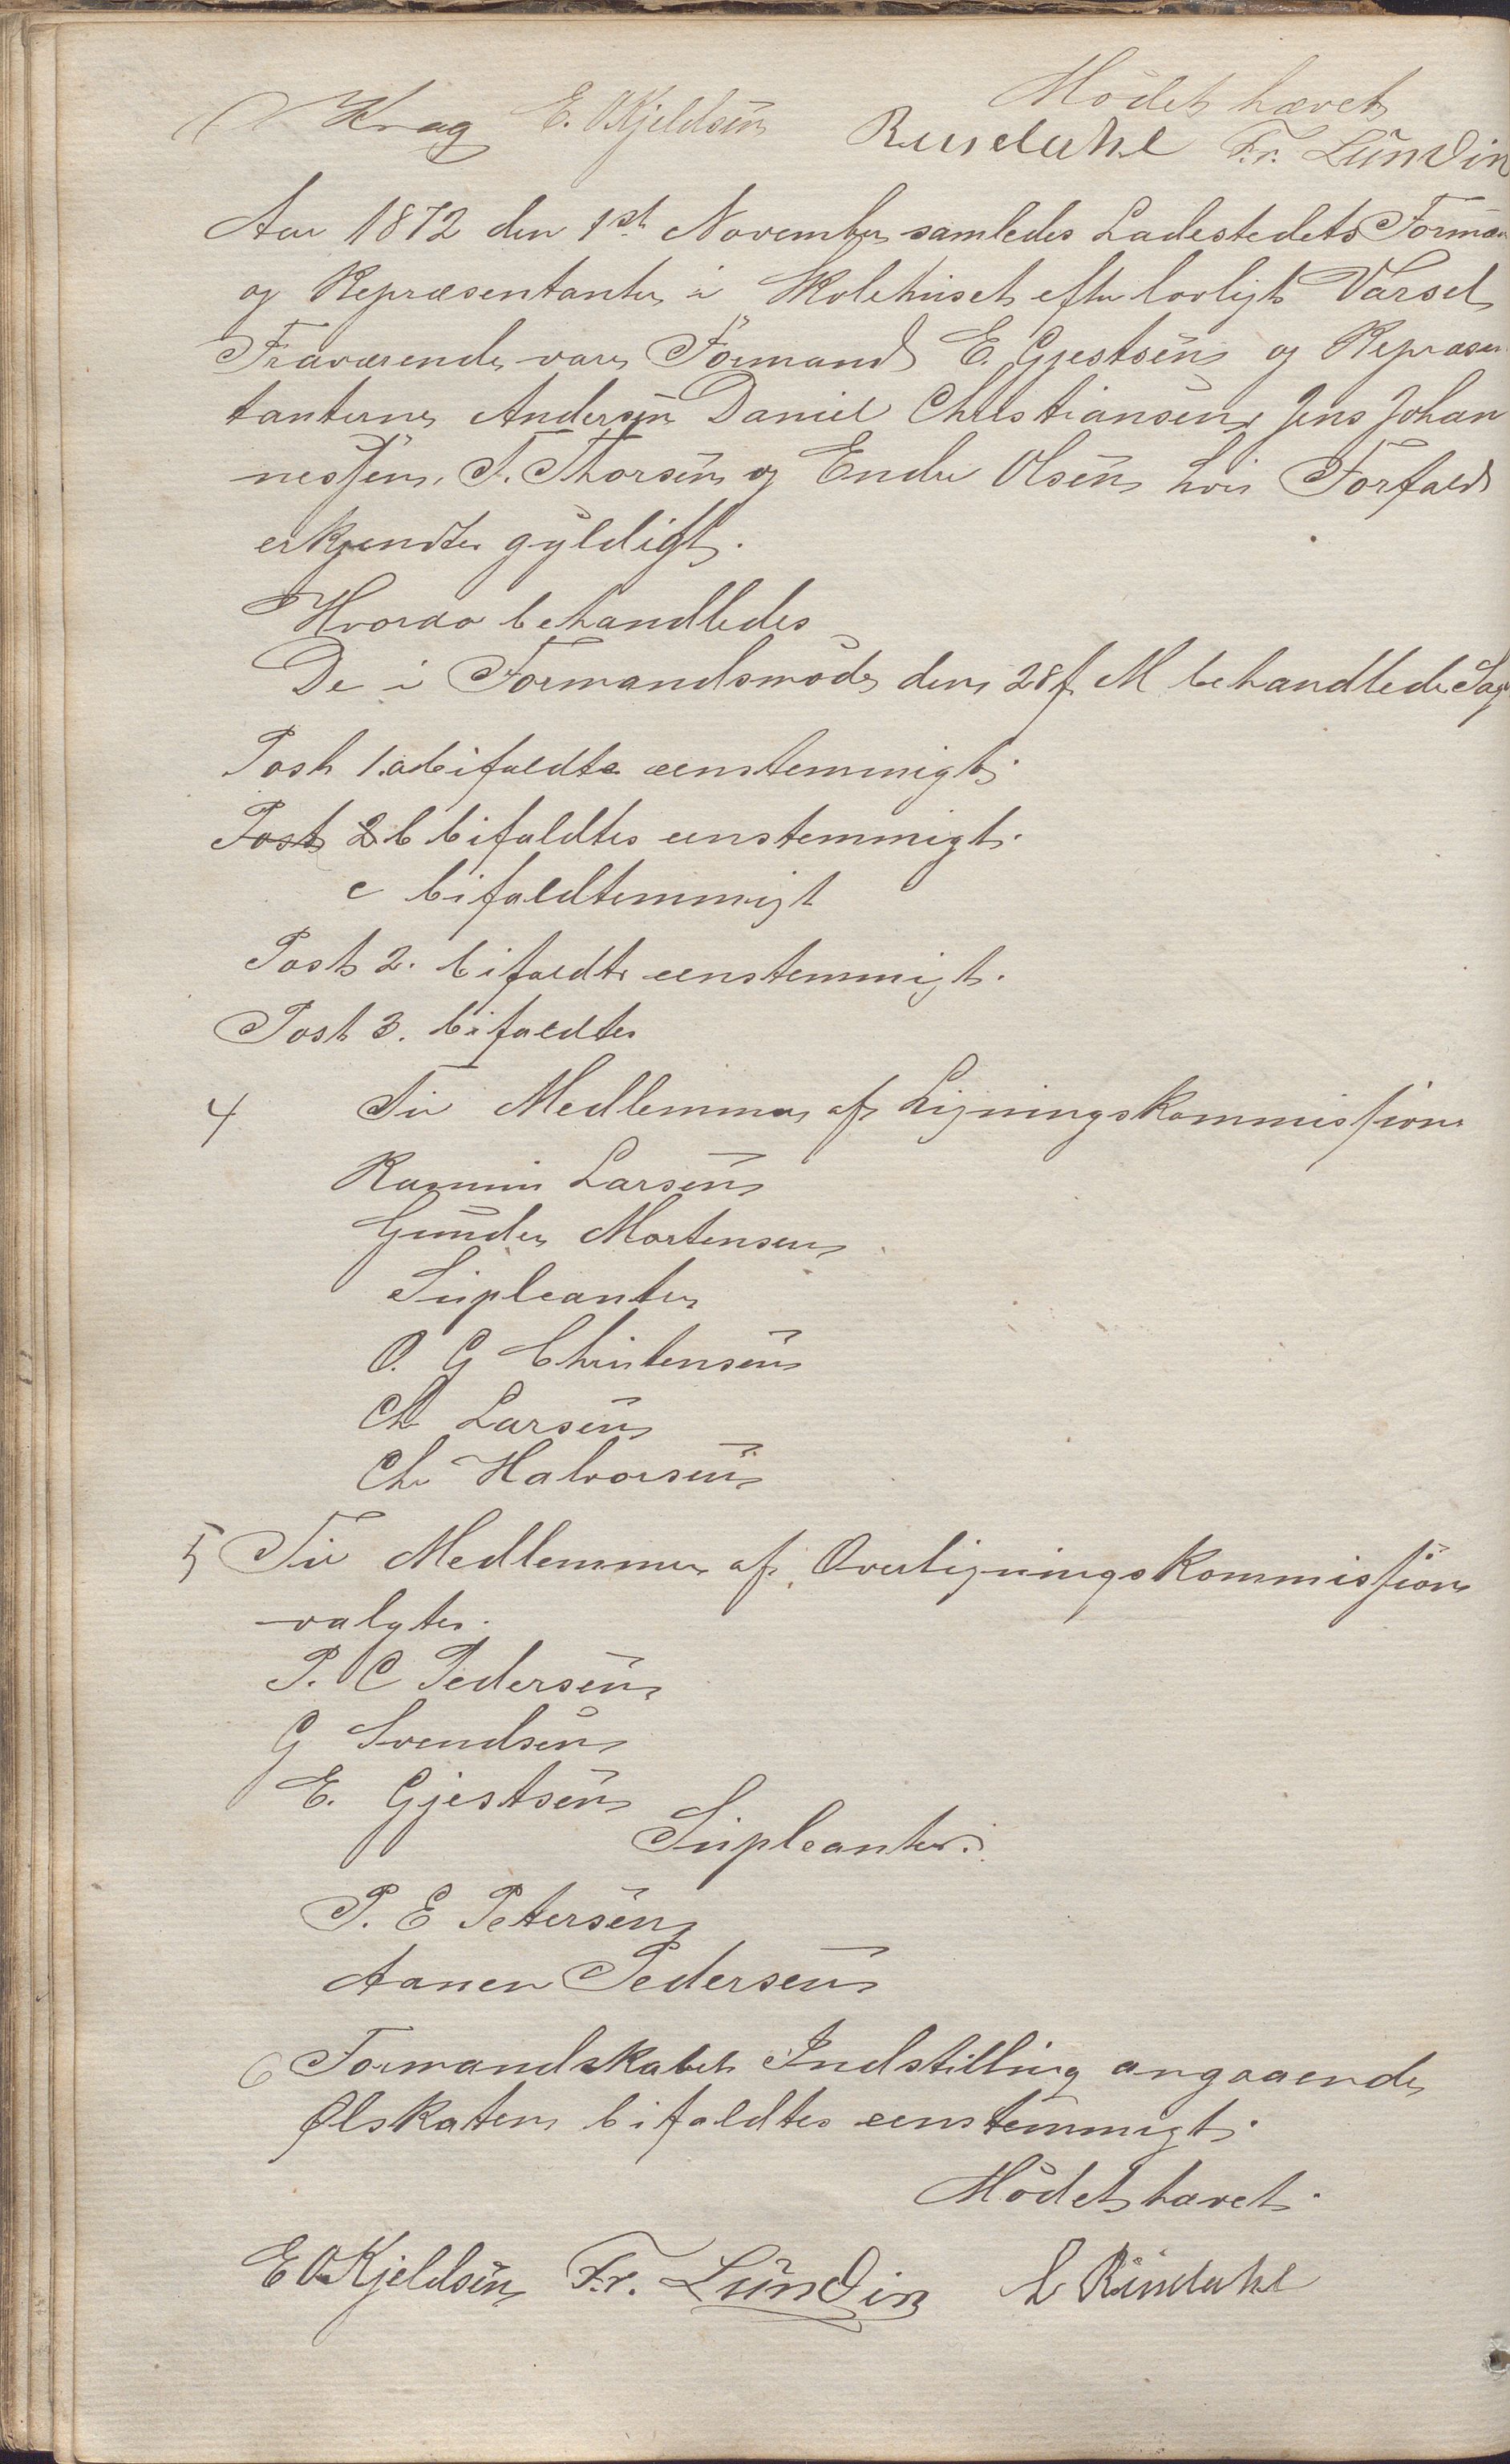 Mödet hævet
Krag E. O Kjeldsen Rusdahl Fr. Lundin
Aar 1872 den 1st November samledes Ladestedets Formæn
og Repræsentanter i Skolehuset efter lovligt Varsel
Fraværende vare Formand E. Gjestsen og Repræsen
tanterne Andersen Daniel Christiansen, Jens Johan
nessen, T. Thorsen og Endre Olsen hvis Forfald
erkjendtes gyldigt.
Hvorda behandledes
De i Formandsmöde den 28 f. M behandlede Sag
Post 1. a bifaldtes eenstemmigt.
Post 2 b bifaldtes eenstemmigt.
c bifaldtemmigt
Post 2. bifaldtes eenstemmigt.
Post 3. bifaldtes
4 Til Medlemmer af Ligningskommission
Rasmus Larsen
Gunder Mortensen
Supleanter
O. G Christensen
Ch Larsen
Ch Halvorsen
5 Til Medlemmer af Overligningskommission
valgtes.
P. C Pedersen
G Svendsen
E. Gjestsen
Supleanter.
P. E Petersen
Aanen Pedersen
6 Formandskabets Indstilling angaaende
Ølskatten bifaldtes eenstemmigt.
Mödet hævet.
E O Kjeldsen Fr. Lundin L Rusdahl